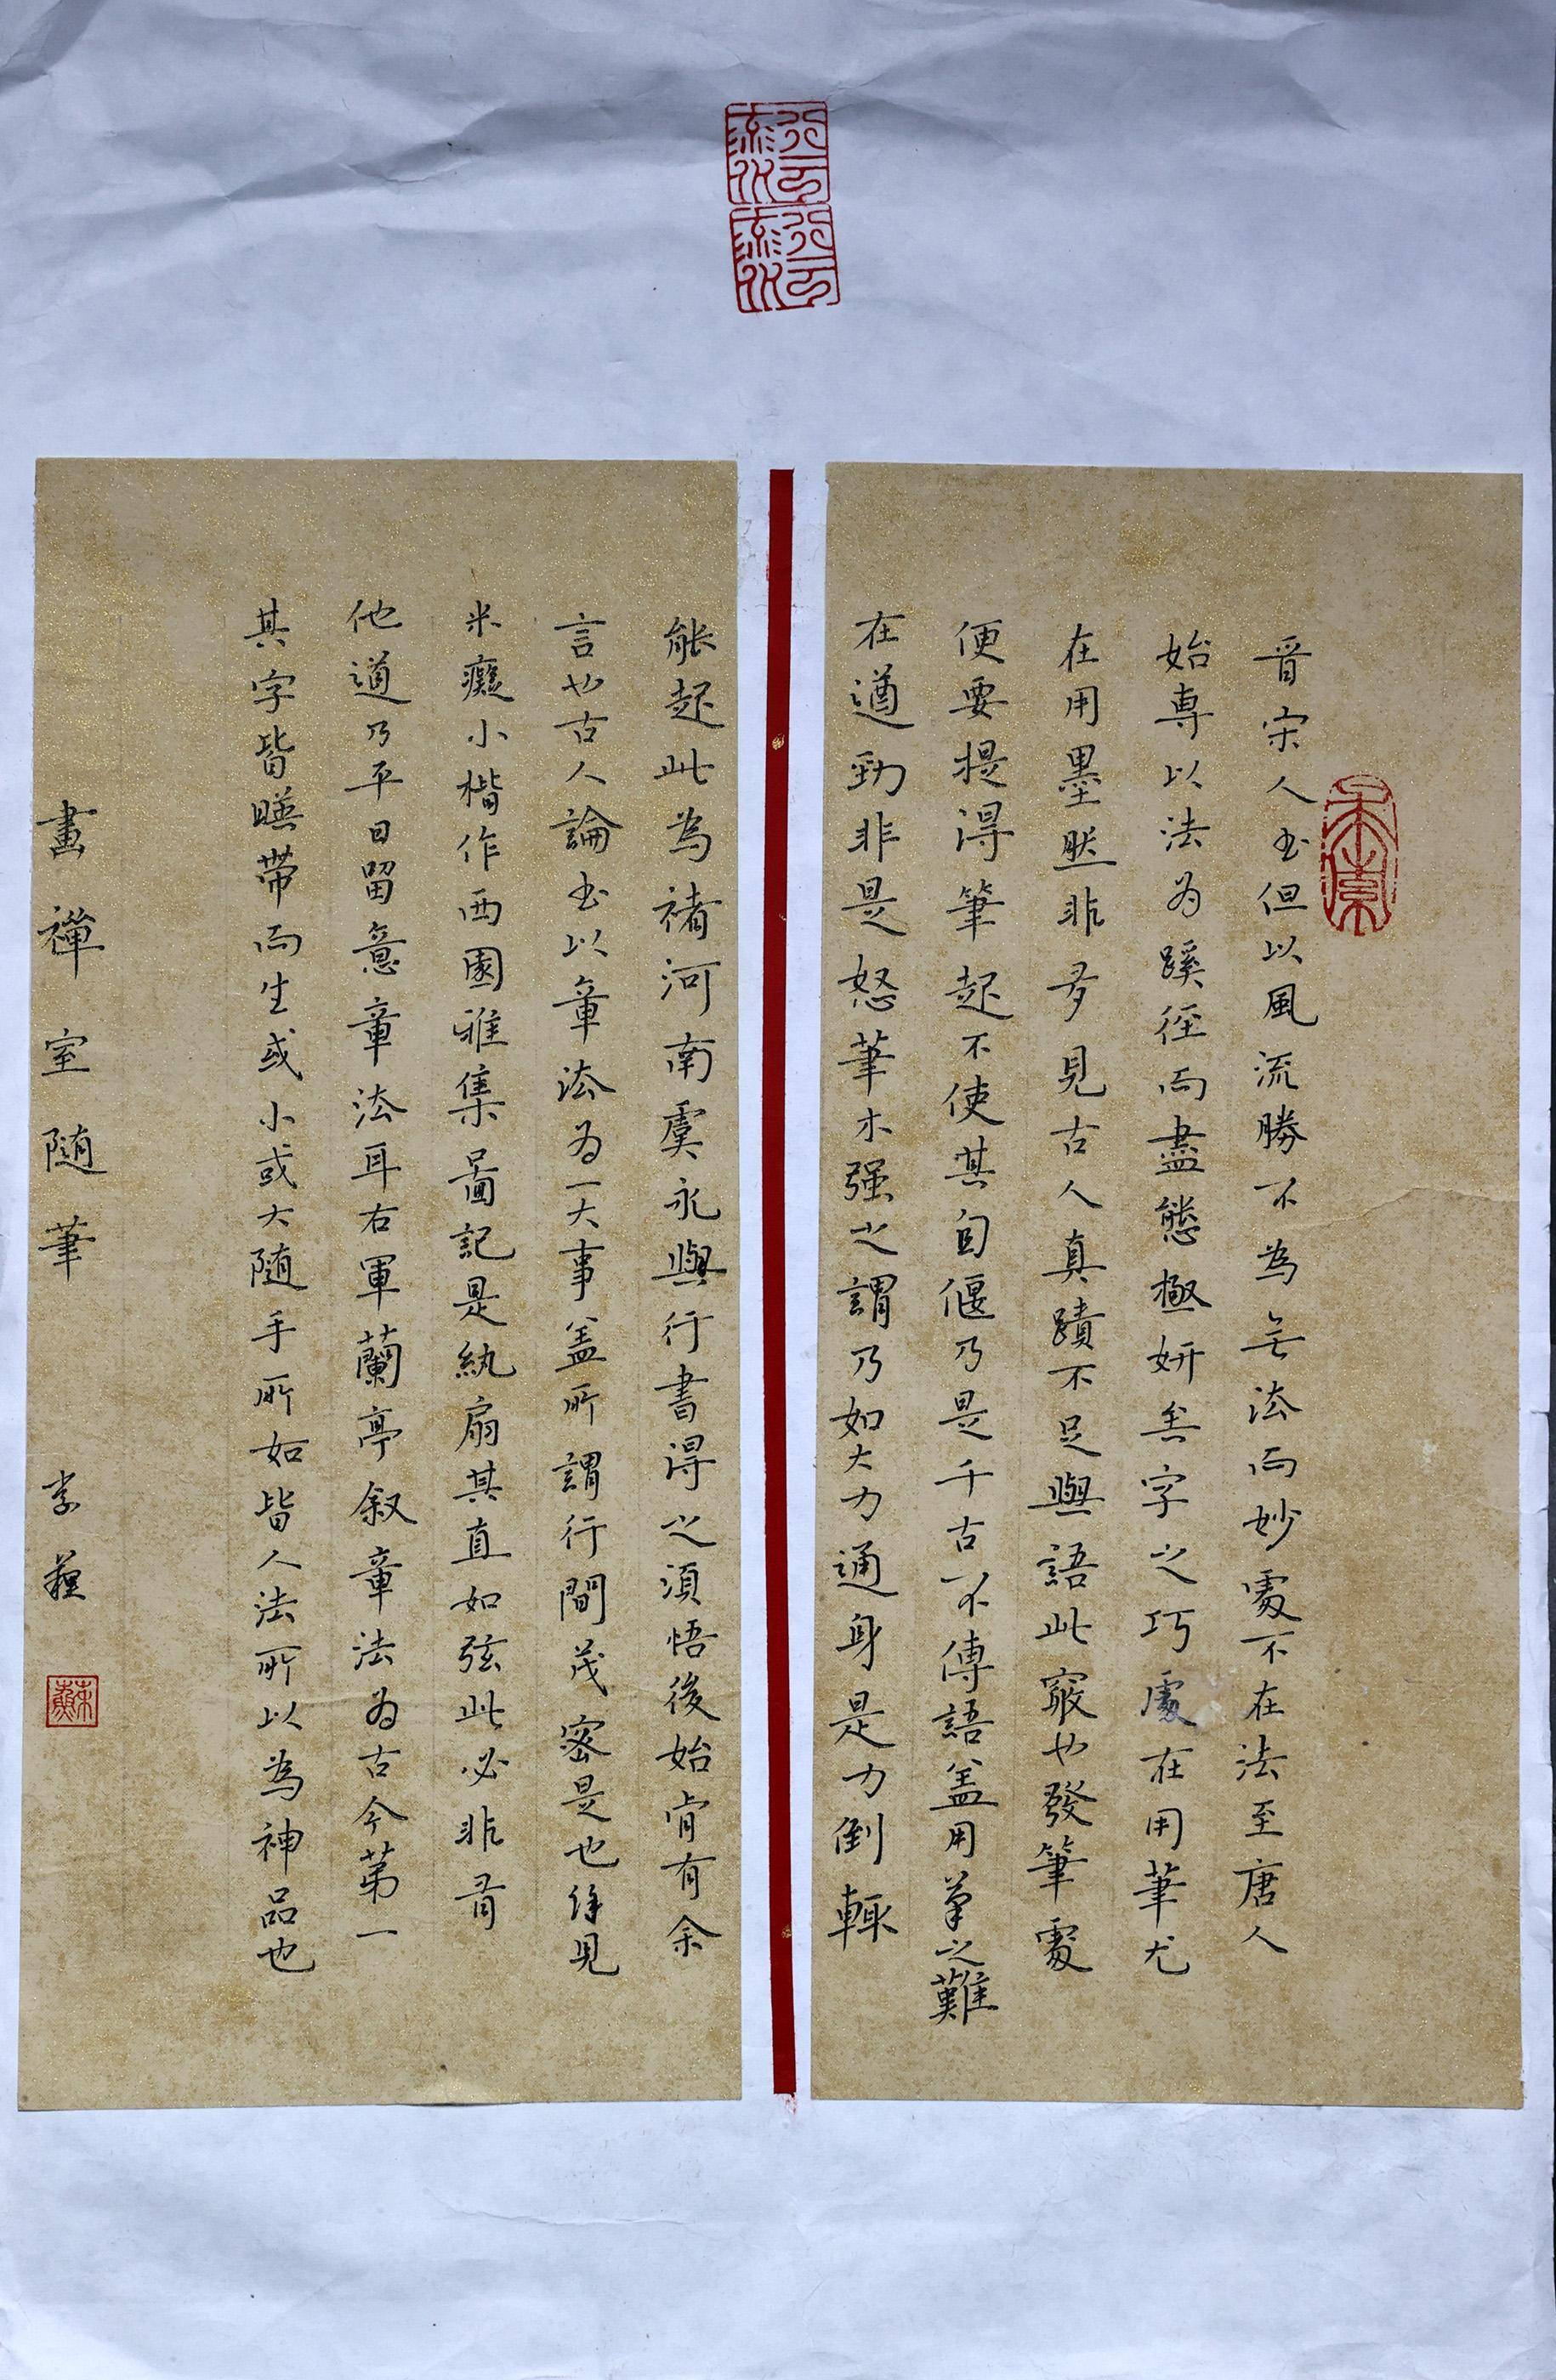 行云流水
行云流水
晋宋人书但以風流勝不為無法而妙處不在法至唐人
始専以法为蹊徑而盡態極妍矣字之巧處在用筆尤
在用墨然非多見古人真蹟不足與語此竅也發筆處
便要提得筆起不使其自偃乃是千古不傳語盖用筆之難
在遒勁非是怒筆木强之謂乃如大力通身是力倒輒
能起此為褚河南虞永興行書得之須悟後始肯有余
言也古人論书以章法为一大事盖所謂行間茂密是也余見
米癡小楷作西園雅集啚記是紈扇其直如弦此必非有
他道乃平日留意章法耳右軍蘭亭叙章法为古今第一
其字皆暎带而生或小或大随手所如皆入法所以為神品也
畫禪室随筆
李蘓